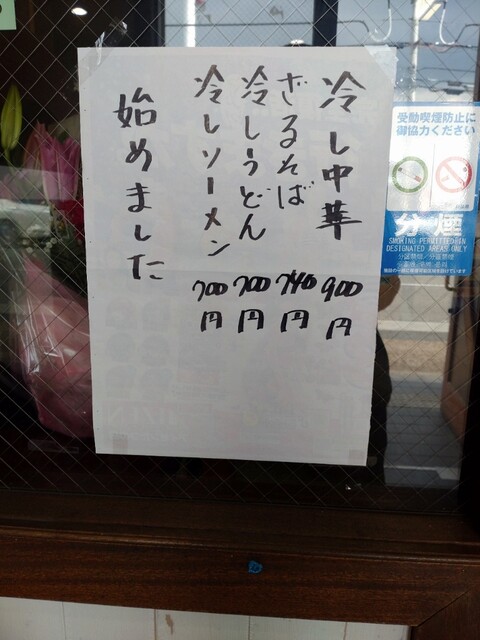 冷し中華 900円
ざるそば 740円
冷しうどん 700円
冷しソーメン 700円
始めました
受動喫煙防止に
御協力ください
分煙
SMOKING PERMITTED IN
DESIGNATED AREAS ONLY